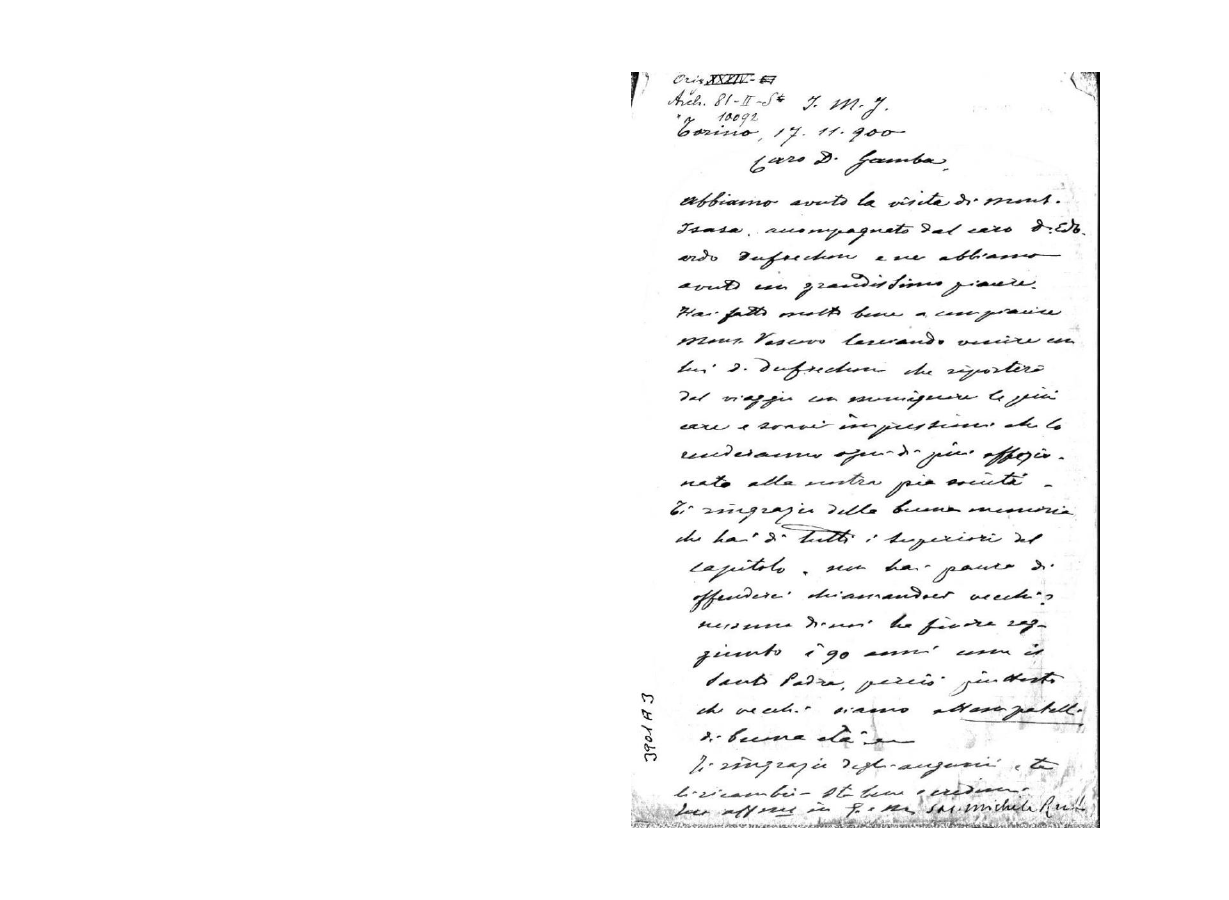 Orig. XXXIV-
Arch. 81-II-St J. M. J.
10092
Torino, 17. 11. 900
Caro D. Gamba,
Abbiamo avuto la visita di mons.
Isasa, accompagnato dal caro D. Edo-
ardo Dufrechou e ne abbiamo
avuto un grandissimo piacere.
Hai fatto molto bene a compiacere
Mons. Vescovo lasciando venire con
lui D. Dufrechou che riporterà
dal viaggio con monsignore le più
care e soavi impressioni che lo
renderanno ognidi più affezio-
nato alla nostra pia società -
Ti ringrazio della buona memoria
che hai di tutti i superiori del
capitolo, non hai paura di
offenderci chiamandoci vecchi?
nessuno di noi ha finora rag-
giunto i 90 anni come il
Santo Padre, perciò piuttosto
che vecchi siamo
di buona età
Ti ringrazio degli augurii e te
li ricambio - Sta bene e credimi
Tuo in G. e M. Sac. Michele Rua
3901 A 3